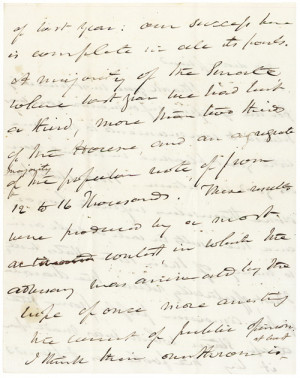 of last year: our success here
is complete in all its parts.
A majority of the Senate
where last year we had but
a third, more than two thirds
of the House, and an aggregate
majority
of the popular vote of from
12 to 16 Thousands. These results
were produced by a most
contest, in which the
adversary was animated by the
hope of once more
the current of public opinion
at last
I think their overthrow is